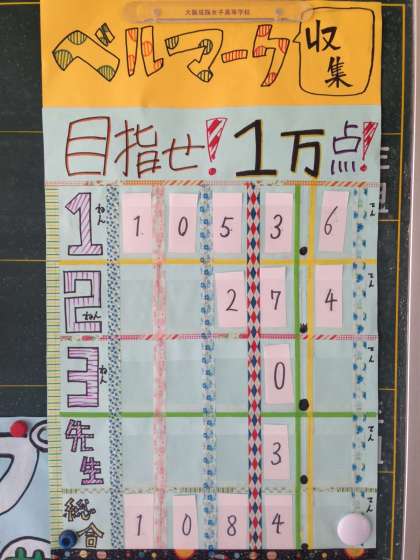 大阪成蹊女子高等学校
ベルマーク収集
目指せ!1万点!
1ねん 1 0 5 3.6 てん
2ねん 2 7.4 てん
3ねん 0. てん
先生 3. てん
総合 1 0 8 4